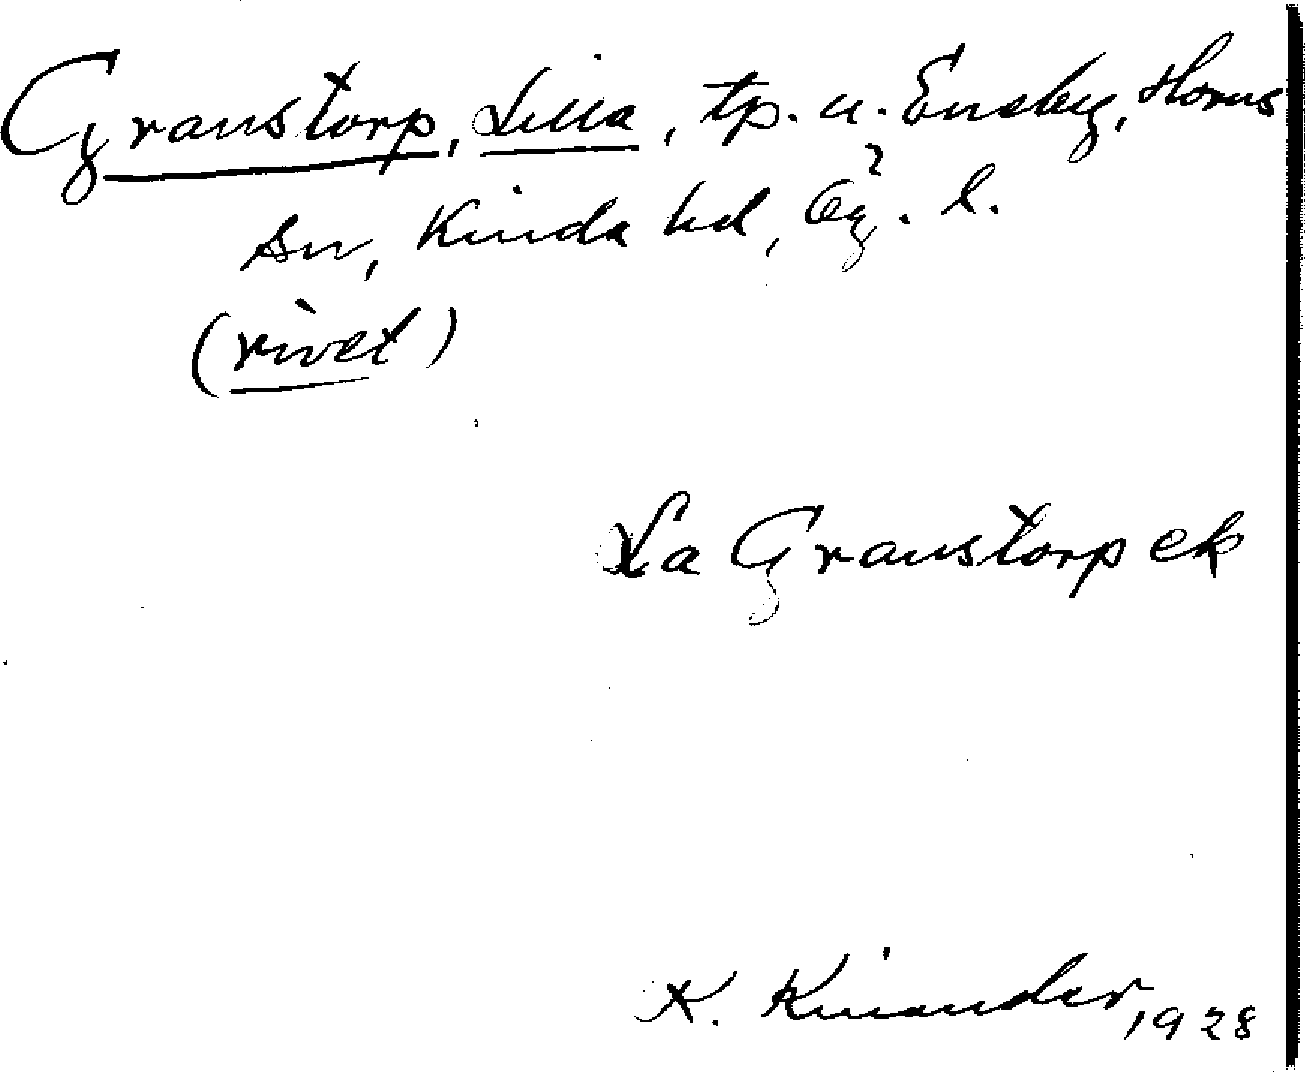 Granstorp, Lilla, tp. u. Eneby, Horns
sn, Kinda hd, Ög. l.
(rivet)
La Granstorp ek
K. Kinander, 1928